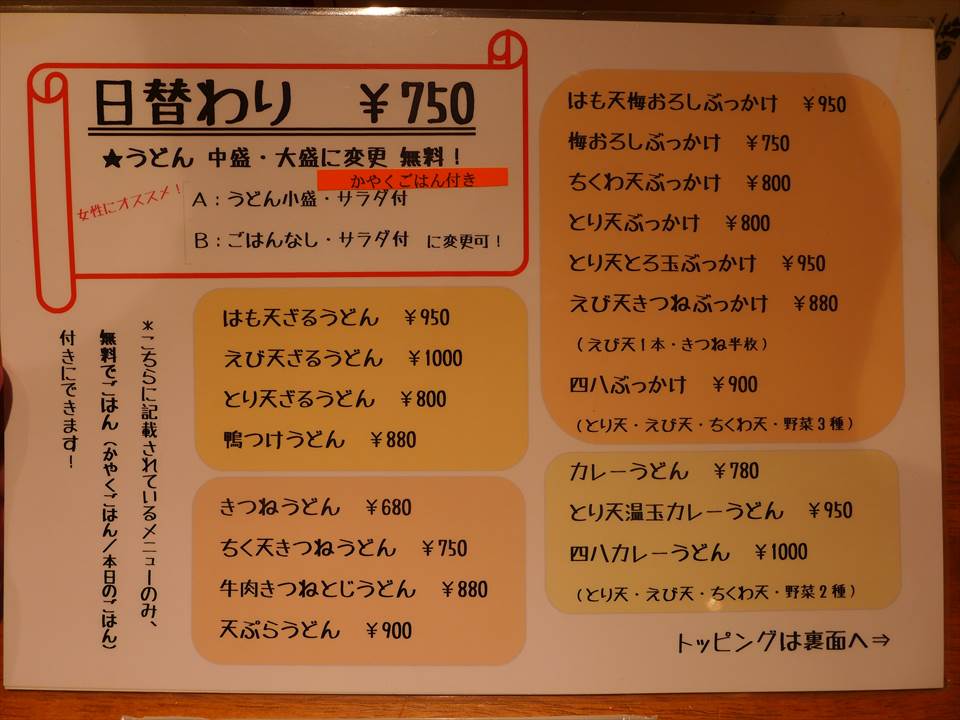 日替わり ￥750
★うどん 中盛・大盛に変更 無料！
かやくごはん付き
女性にオススメ！
A：うどん小盛・サラダ付
B：ごはんなし・サラダ付 に変更可！
＊こちらに記載されているメニューのみ、
無料でごはん（かやくごはん／本日のごはん）
付きにできます！
はも天ざるうどん ￥950
えび天ざるうどん ￥1000
とり天ざるうどん ￥800
鴨つけうどん ￥880
きつねうどん ￥680
ちく天きつねうどん ￥750
牛肉きつねとじうどん ￥880
天ぷらうどん ￥900
はも天梅おろしぶっかけ ￥950
梅おろしぶっかけ ￥750
ちくわ天ぶっかけ ￥800
とり天ぶっかけ ￥800
とり天とろ玉ぶっかけ ￥950
えび天きつねぶっかけ ￥880
（えび天1本・きつね半枚）
四八ぶっかけ ￥900
（とり天・えび天・ちくわ天・野菜3種）
カレーうどん ￥780
とり天温玉カレーうどん ￥950
四八カレーうどん ￥1000
（とり天・えび天・ちくわ天・野菜2種）
トッピングは裏面へ⇒